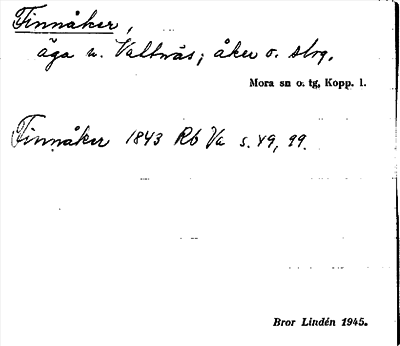 Finnåker,
äga u. Valtnäs; åker o. slog.
Mora sn o. tg, Kopp. l.
Finnåker 1843 Rb Va s. 49, 99.
Bror Lindén 1945.